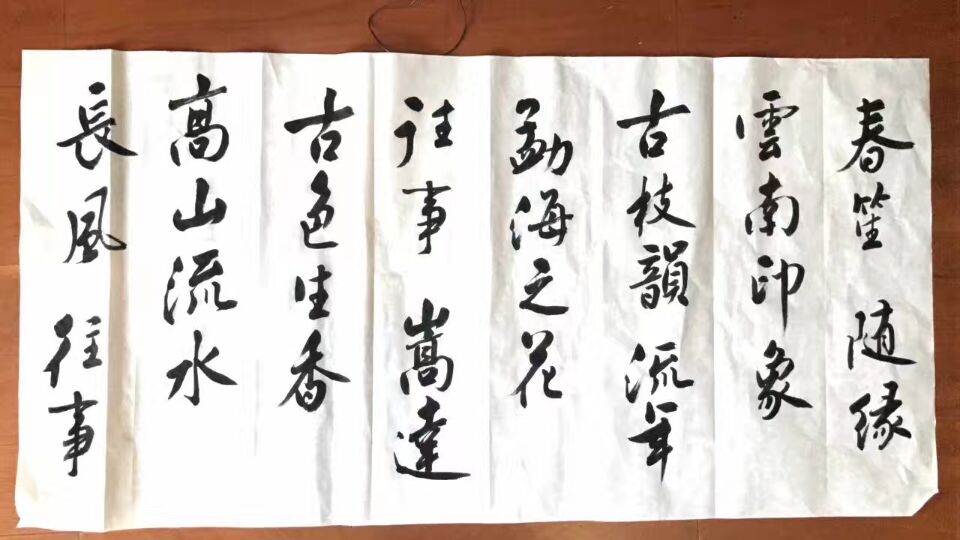 春笙 随缘
雲南印象
古枝韻 流年
勐海之花
往事 嵩達
古色生香
高山流水
長風 往事